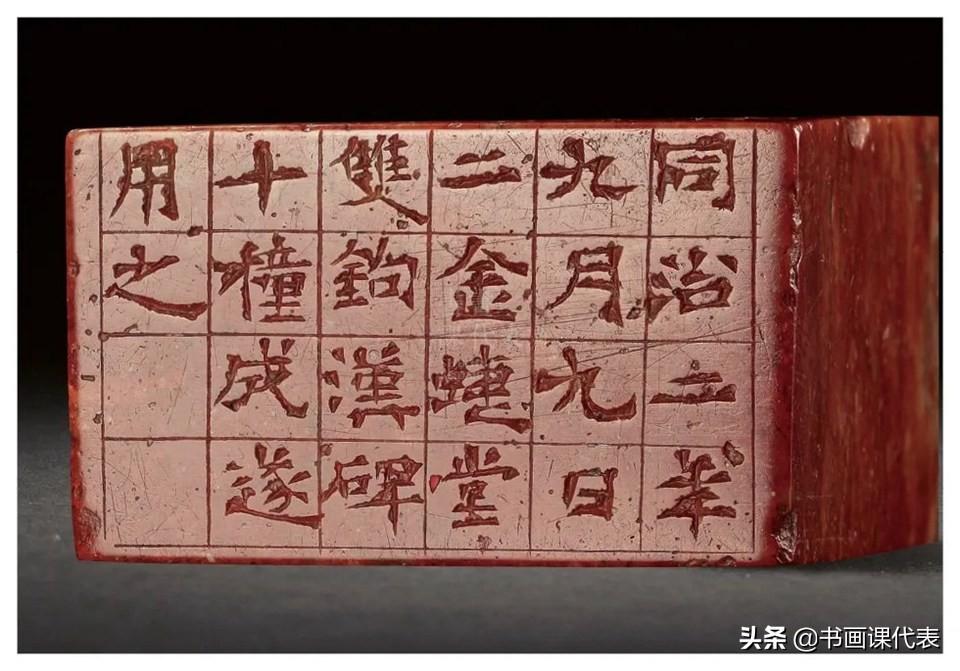 同治二年
九月九日
二金蜨堂
雙鉤漢碑
十穜成遂
用之
头条 @书画课代表